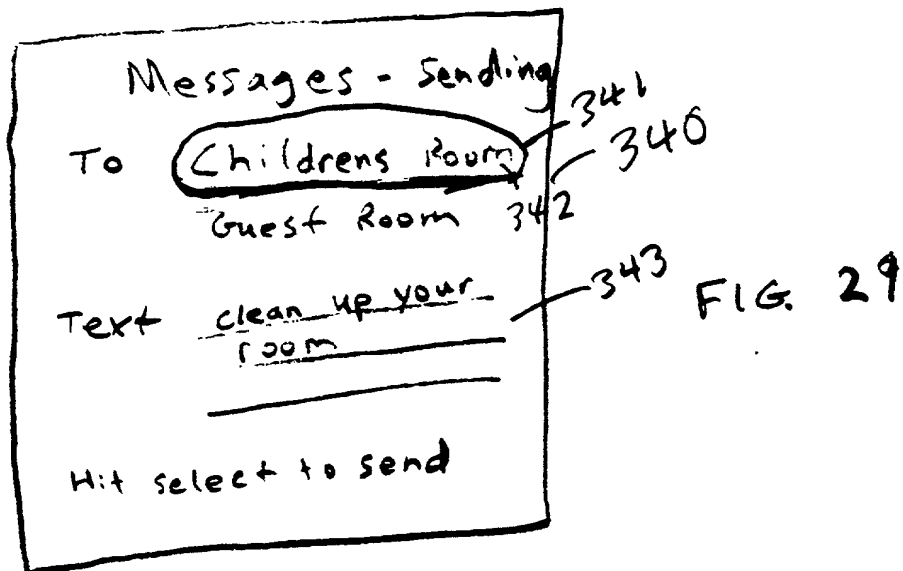 Messages - Sending
341
To Childrens Room
340
Guest Room 342
343
Text clean up your
room
FIG. 29
Hit select to send